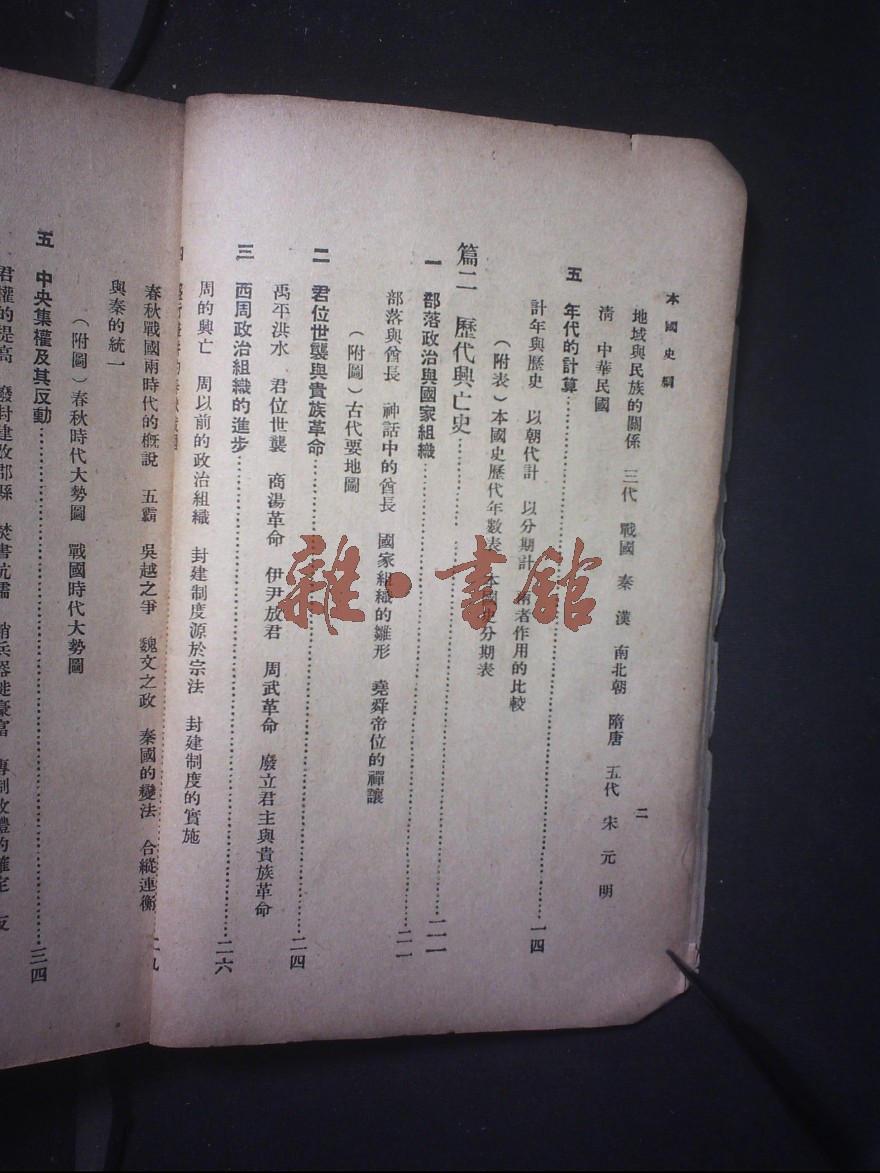 本國史綱
二
地域與民族的關係 三代 戰國 秦 漢 南北朝 隋唐 五代 宋 元 明
清 中華民國
五 年代的計算…………一四
計年與歷史 以朝代計 以分期計 兩者作用的比較
（附表）本國史歷代年數表 本國史分期表
篇二 歷代興亡史…………二一
一 部落政治與國家組織…………二一
部落與酋長 神話中的酋長 國家組織的雛形 堯舜帝位的禪讓
（附圖）古代要地圖
二 君位世襲與貴族革命…………二四
禹平洪水 君位世襲 商湯革命 伊尹放君 周武革命 廢立君主與貴族革命
三 西周政治組織的進步…………二六
周的興亡 周以前的政治組織 封建制度源於宗法 封建制度的實施
四…………二九
春秋戰國兩時代的概說 五霸 吳越之爭 魏文之政 秦國的變法 合縱連衡
與秦的統一
（附圖）春秋時代大勢圖 戰國時代大勢圖
五 中央集權及其反動…………三四
君權的提高 廢封建改郡縣 焚書坑儒 銷兵器徙豪富 專制政體的確定 反
雜·書館